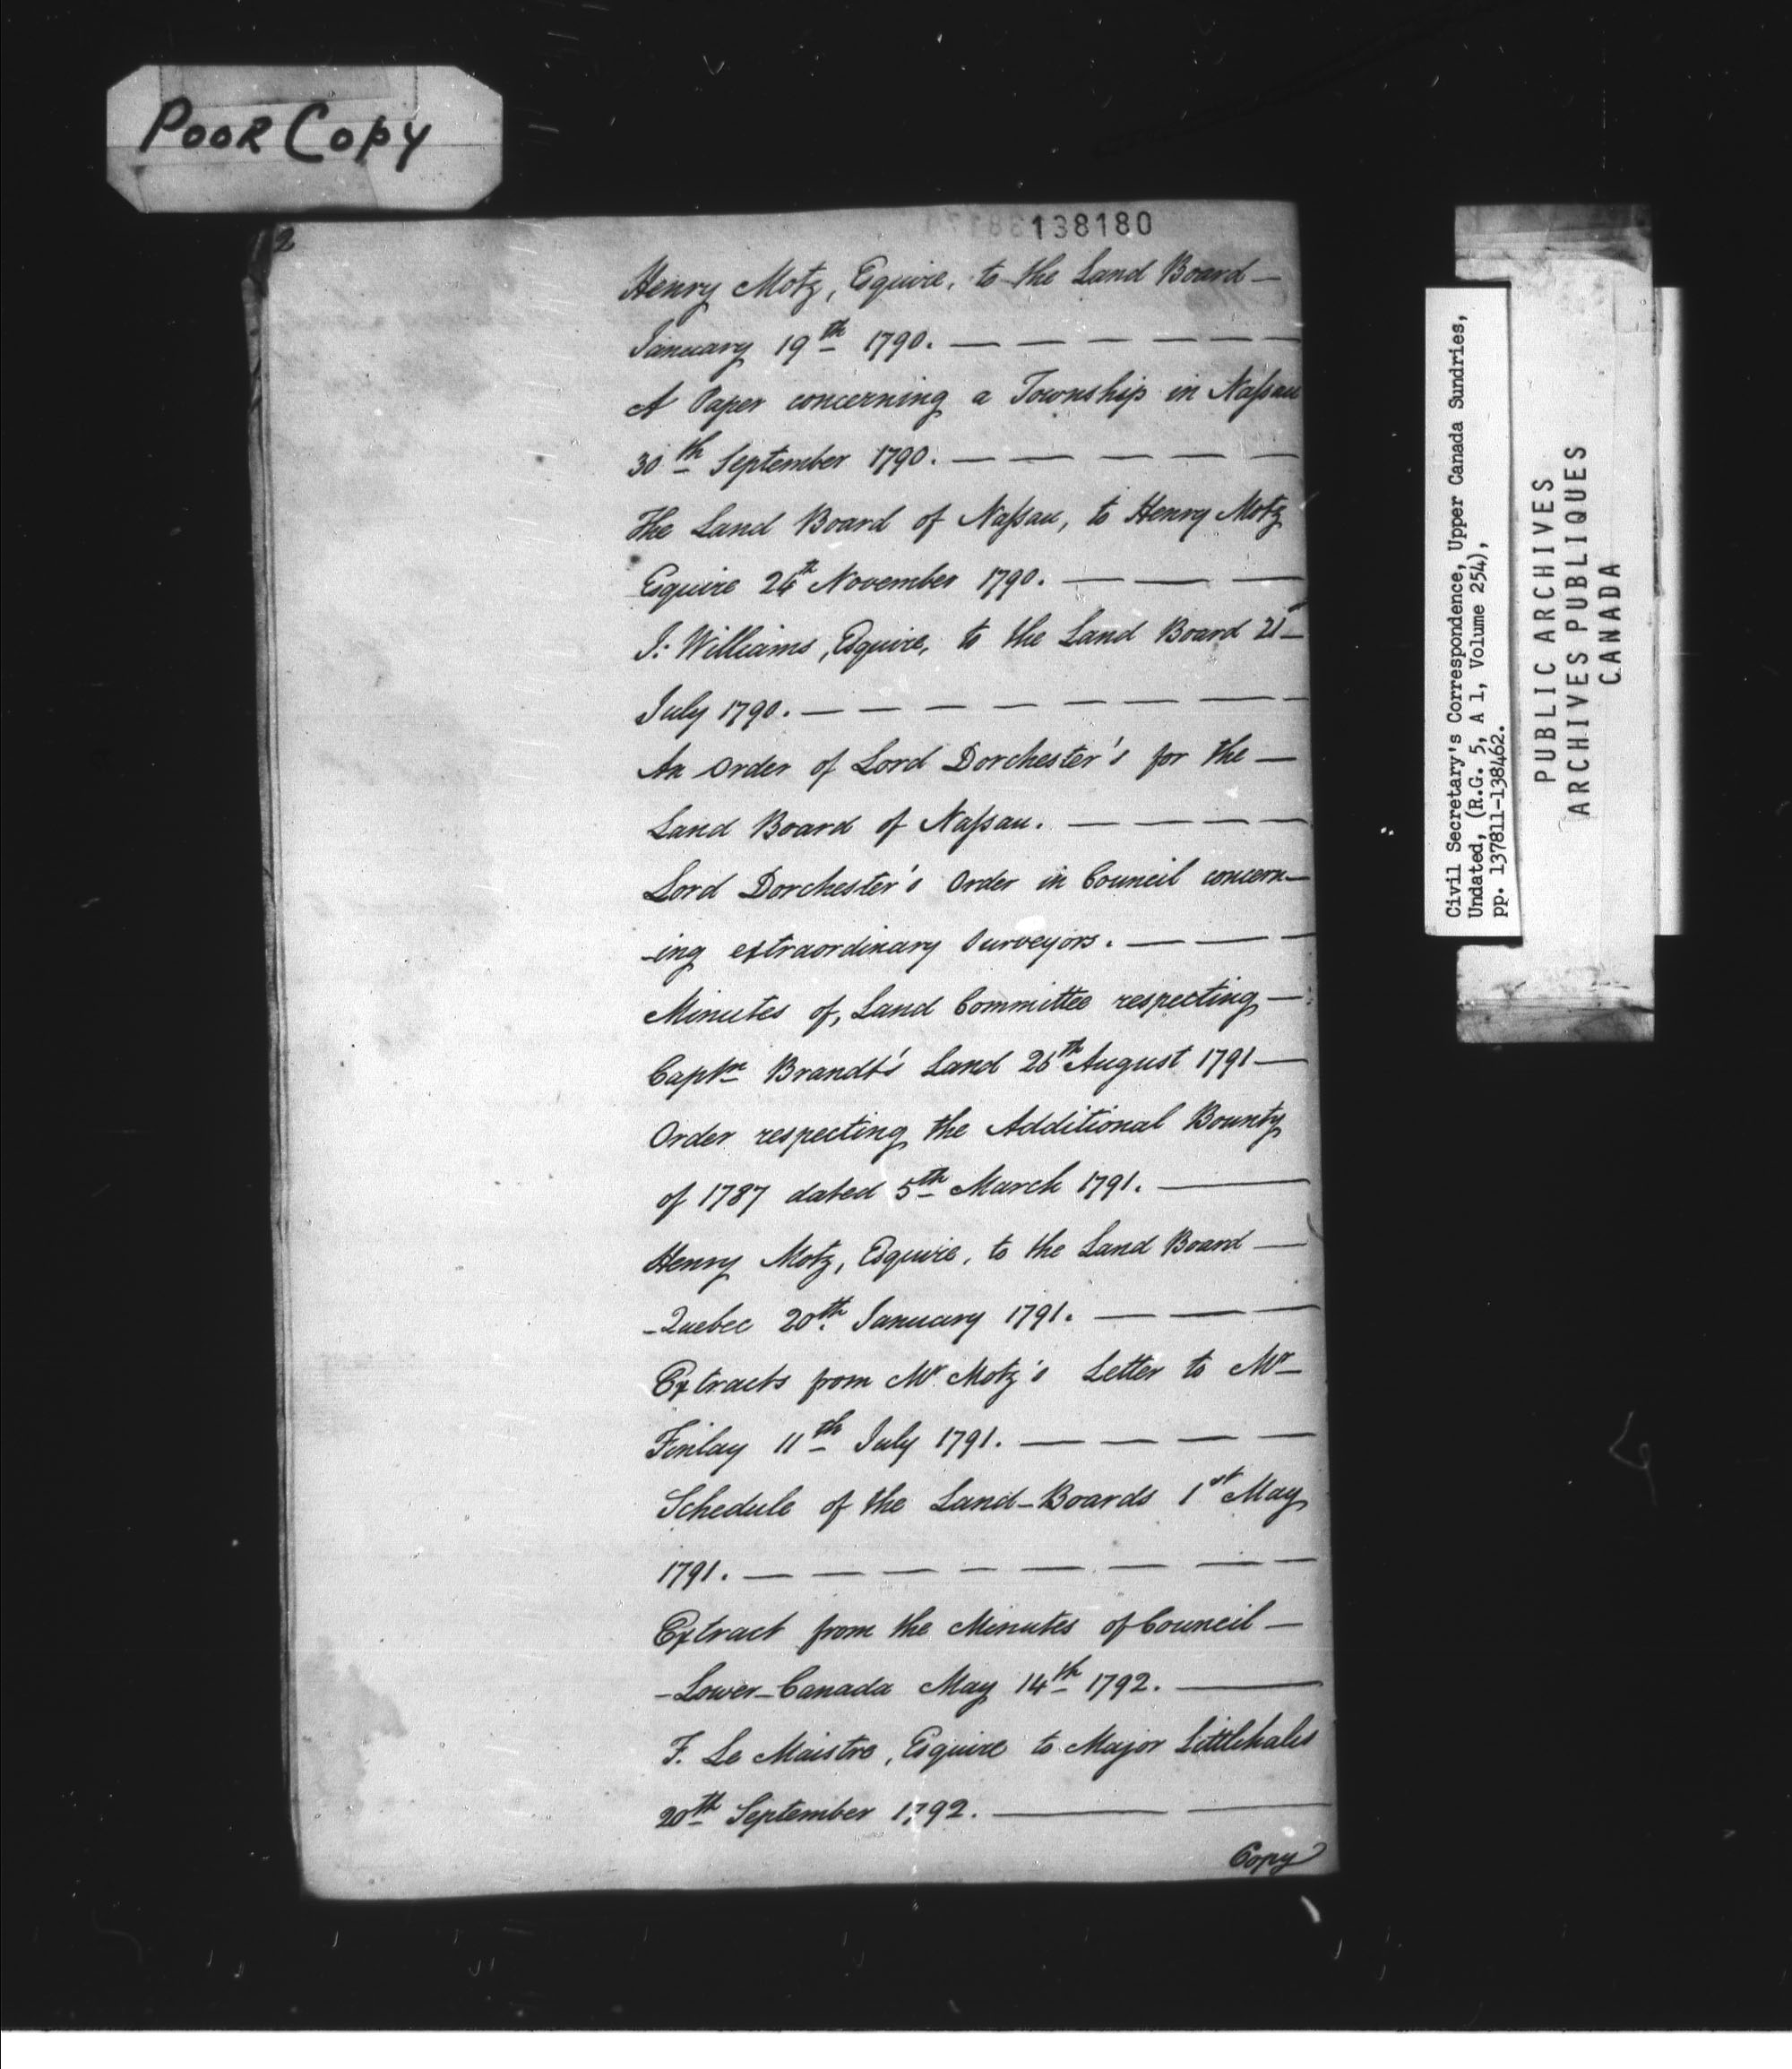 Poor Copy
2
138180
Henry Motz, Esquire, to the Land Board —
January 19th 1790. — — — — — —
A Paper concerning a Township in Naſsau
30th September 1790. — — — — —
The Land Board of Naſsau, to Henry Motz
Esquire 24th November 1790. — — —
J: Williams, Esquire, to the Land Board 21st
July 1790. — — — — — — —
An Order of Lord Dorchester's for the —
Land Board of Naſsau. — — — —
Lord Dorchester's Order in Council concern-
-ing extraordinary Surveyors. — — —
Minutes of, Land Committee respecting —
Captn Brandt's Land 26th August 1791 —
Order respecting the Additional Bounty
of 1787 dated 5th March 1791. —
Henry Motz, Esquire, to the Land Board —
-Quebec 20th January 1791. — — —
Extracts from Mr Motz's Letter to Mr —
Finlay 11th July 1791. — — — —
Schedule of the Land-Boards 1st May
1791. — — — — — — — —
Extract from the Minutes of Council —
-Lower-Canada May 14th 1792. —
F. Le Maistre, Esquire to Major Littlehales
20th September 1792. — —
Copy
Civil Secretary's Correspondence, Upper Canada Sundries,
Undated, (R.G. 5, A 1, Volume 254),
pp. 137811-138462.
PUBLIC ARCHIVES
ARCHIVES PUBLIQUES
CANADA